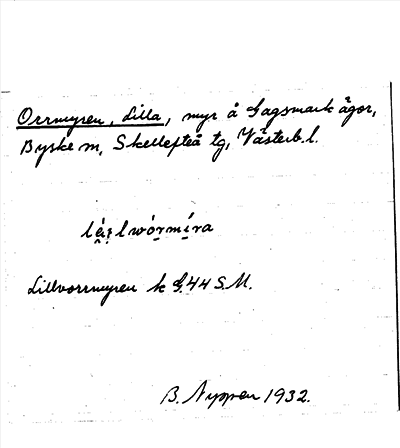 Orrmyren, Lilla, myr å Gagsmark ägor,
Byske m, Skellefteå tg, Västerb. l.
Lillvorrmyren k G.44 S.M.
B. Nyppen 1932.